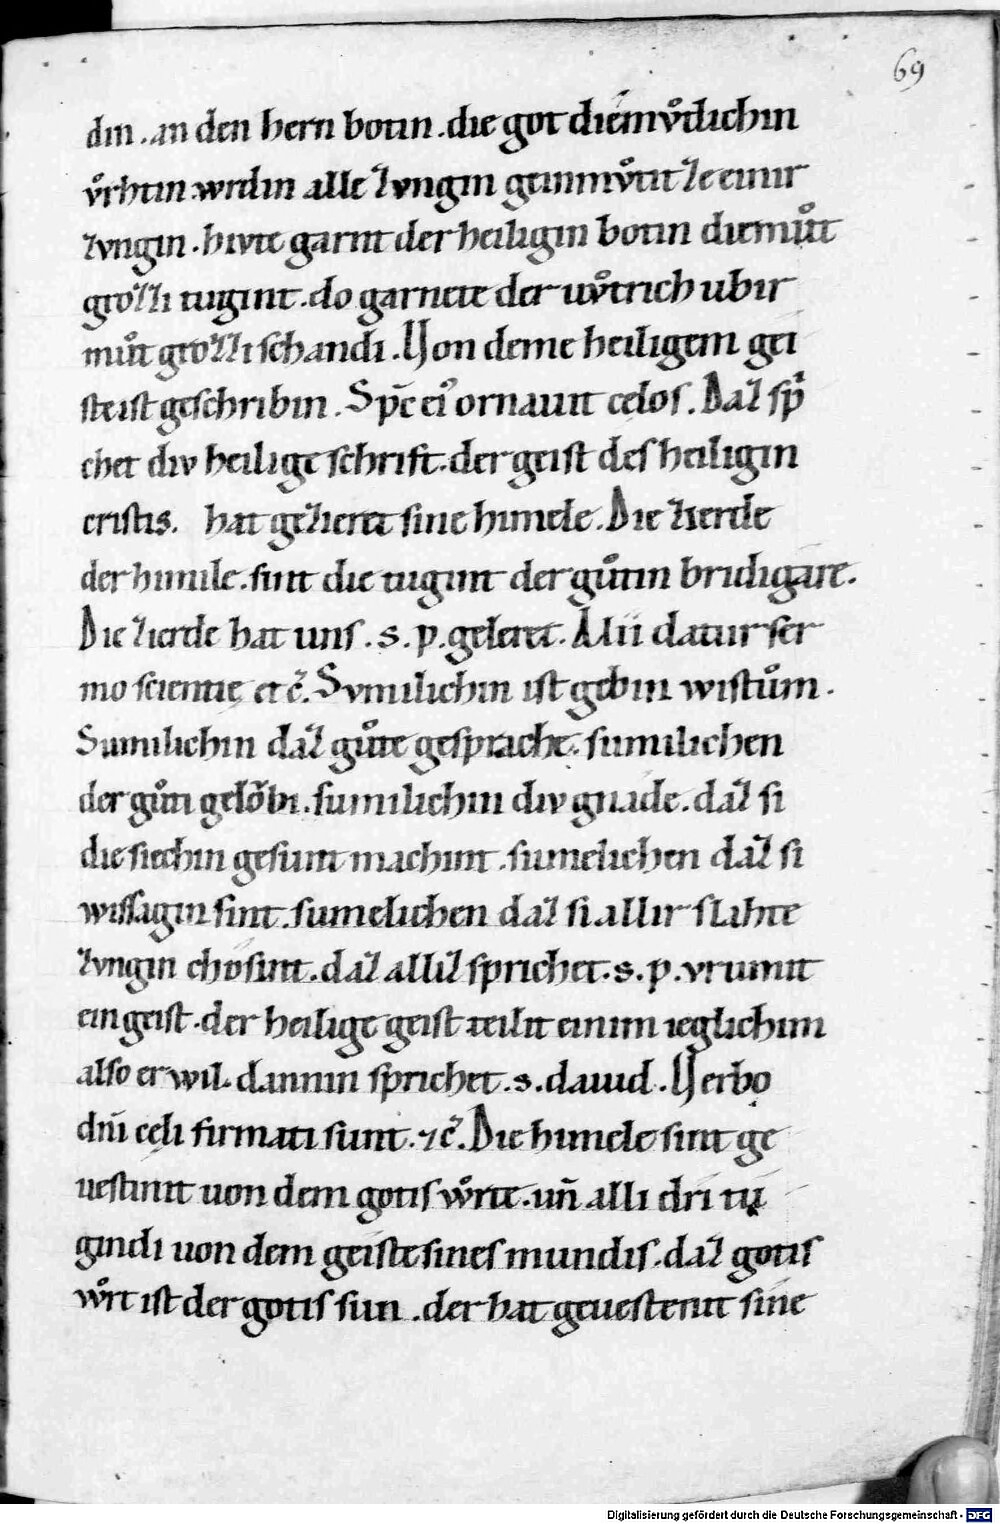 69
din .an den hern botin .die got diemvͦdichin
vͦrhtin .wrdin alle zvngin geinmvͦtit ze einir
zvngin .hivte garnt der heiligin botin diemuͦt
grozzi tugint .do garnete der wvͦtrich ubir
muͦt grozzi schandi .Von deme heiligem gei
ste ist geschribin . Spc̄ ei⁹ ornauit cęlos . Daz sp
chet div heilige schrift .der geist des heiligin
cristis. hat gezieret sine himele .Die zierde
der himile .sint die tugint der guͦtin bridigare.
Die zierde hat uns .s. p. geleret. Alii datur ser
mo scientię et c̄. Svmilichin ist gebin wistuͦm.
Sumilichin daz guͦte gesprache. sumilichen
der guͦti geloͮbi .sumilichin div gnade .daz si
die siechin gesunt machint .sumelichen daz si
wissagin sint .sumelichen daz si allir slahte
zvngin chosint .daz alliz sprichet .s. p. vrumit
ein geist .der heilige geist teilit einim ieglichim
also er wil. dannin sprichet .s. dauid .Verbo
dn̄i cęli firmati sunt .⁊ c̄. Die himele sint ge
uestinit uon dem gotis wͦrte .un̄ alli dri tu
gindi uon dem geiste sines mundis .daz gotis
wͦrt ist der gotis sun .der hat geuestenit sine
Digitalisierung gefördert durch die Deutsche Forschungsgemeinschaft - DFG